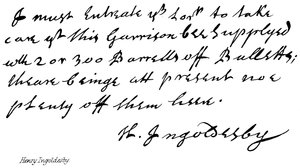 I must Entreate yor Lorsp to take
care yt this Garrison bee Supplyed
wth 2 or 300 Barrells off Bulletts;
theare beinge att present noe
plenty off them heere.
H. Ingoldesby
Henry Ingoldsby